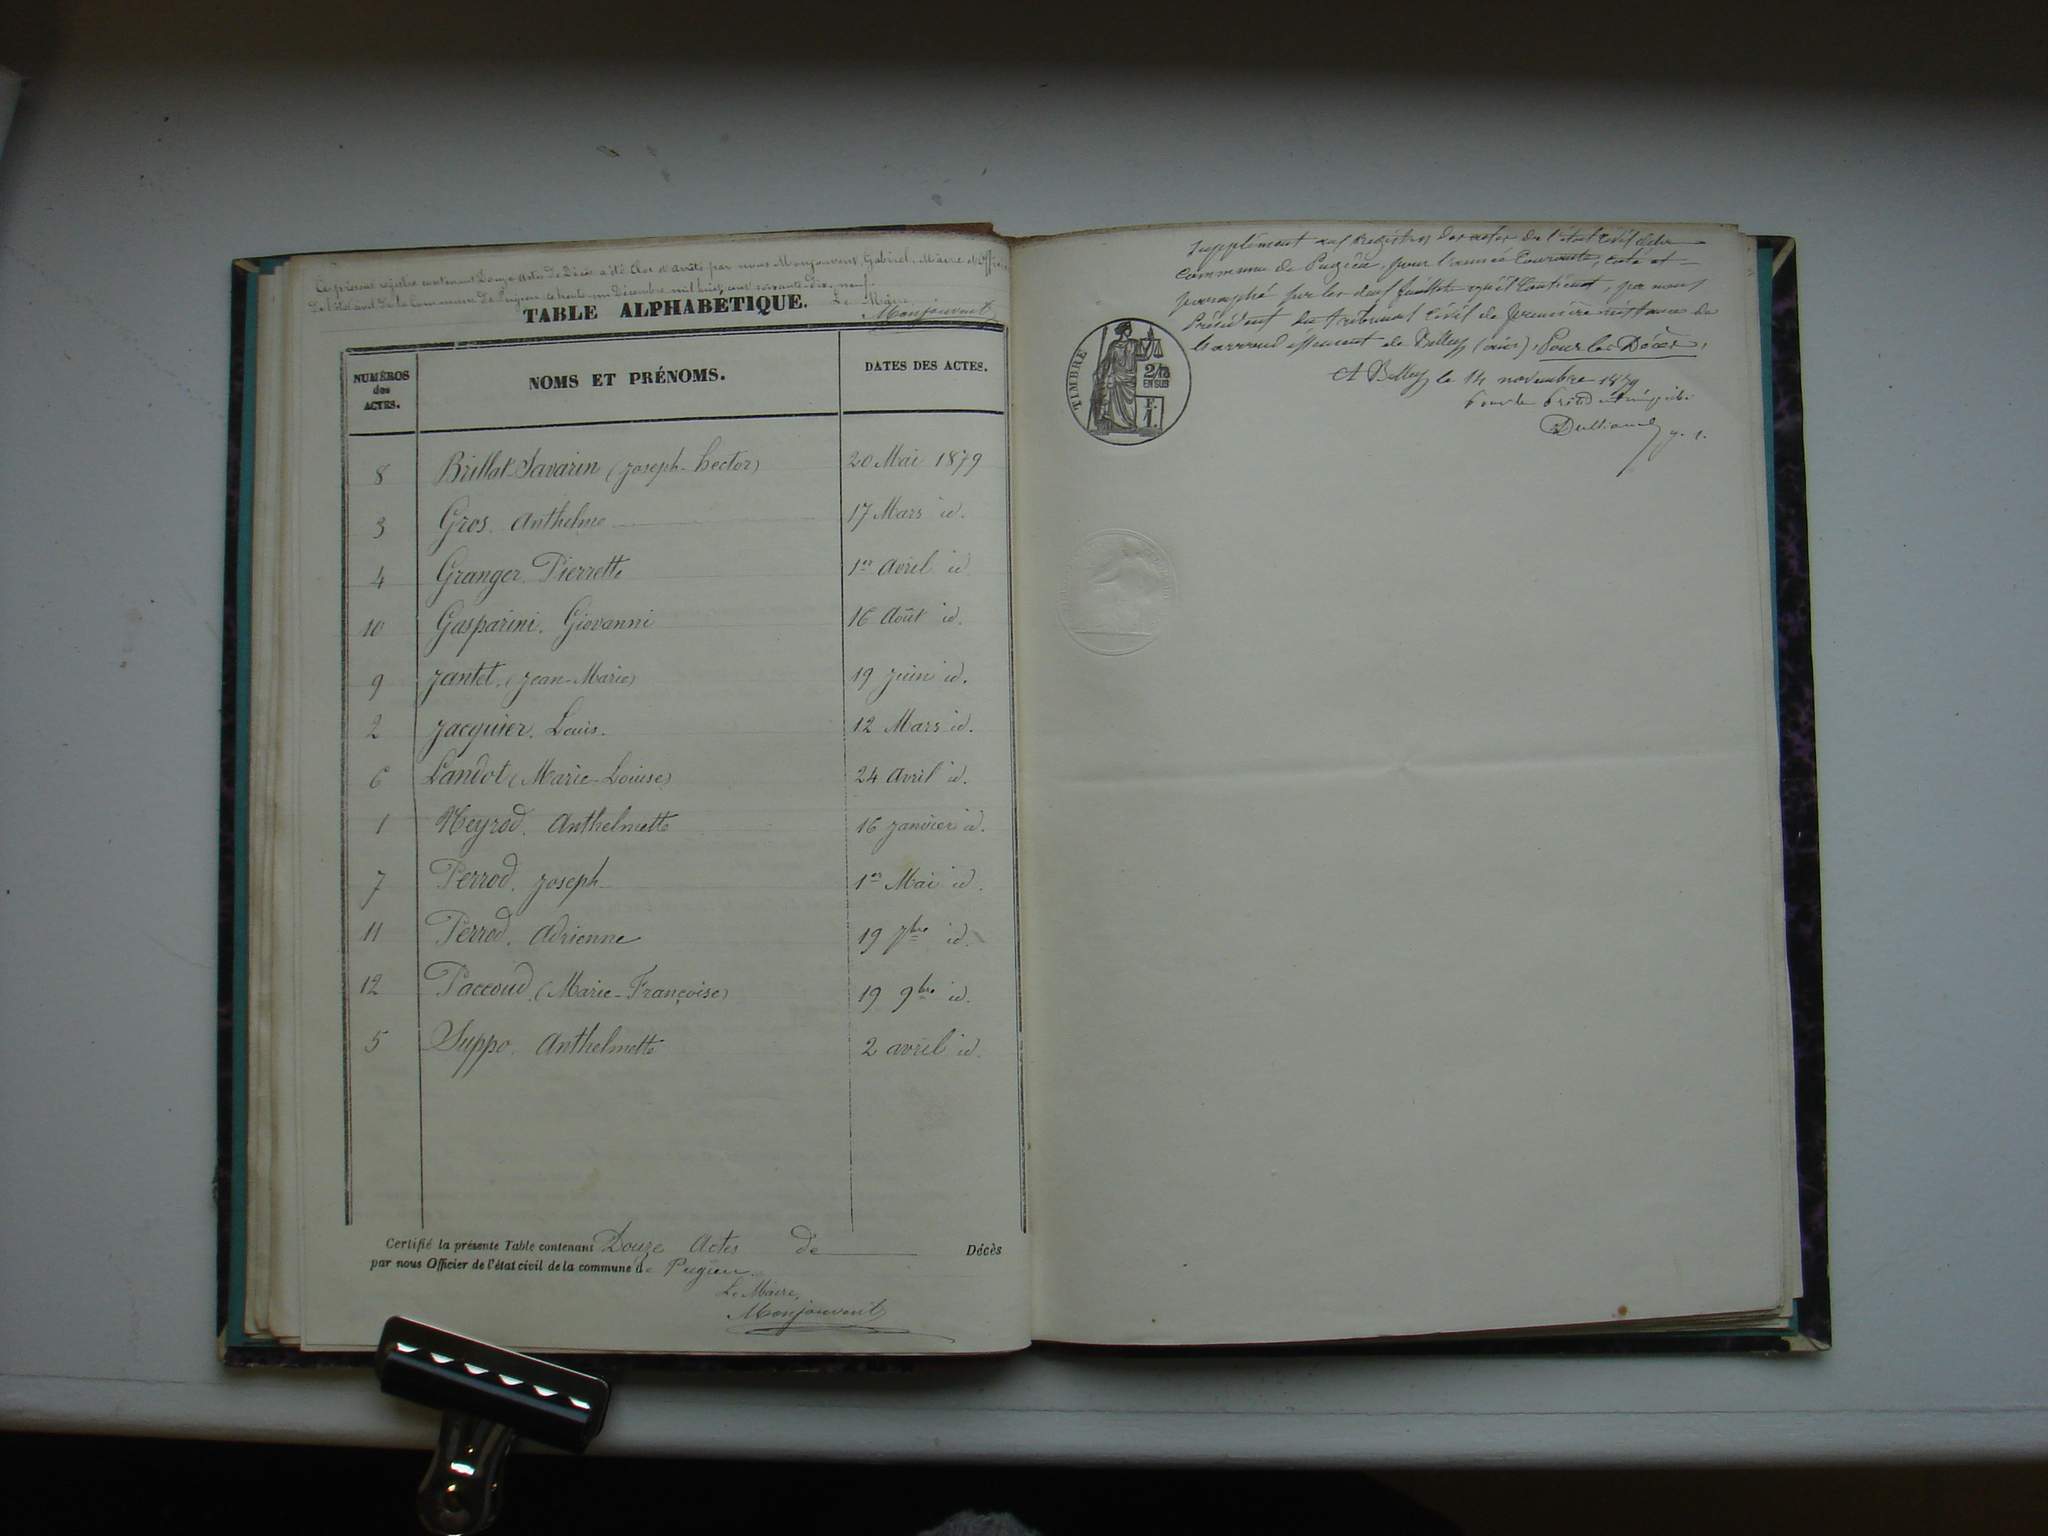 Ce présent registre contenant Douze actes de Décès a été clos et arrêté par nous Monjouvent, Gabriel, Maire et Officier
De l'état civil de la Commune de Pugieu ce trente un Décembre mil huit cent soixante Dix neuf.
Le Maire,
Monjouvent
TABLE ALPHABÉTIQUE.
NUMÉROS des ACTES. NOMS ET PRÉNOMS. DATES DES ACTES.
8 Brillat-Savarin (Joseph-hector) 20 Mai 1879
3 Gros. Anthelme 17 Mars id.
4 Granger. Pierrette 1er Avril id
10 Gasparini. Giovanni 16 Août id.
9 Jantet. (Jean-Marie) 19 Juin id.
2 Jacquier. Louis. 12 Mars id.
6 Landot (Marie-Louise) 24 Avril id.
1 Neyrod. Anthelmette 16 Janvier id.
7 Perrod. Joseph 1er Mai id.
11 Perrod. Adrienne 19 7bre id.
12 Paccoud. (Marie-Françoise) 19 9bre id.
5 Suppo. Anthelmette 2 avril id.
Certifié la présente Table contenant Douze Actes de Décès
par nous Officier de l'état civil de la commune de Pugieu.
Le Maire,
Monjouvent
Supplément aux Registres des actes de l'état civil de la
Commune de Pugieu, pour l'année Courante, coté et
paraphé sur les deux feuillets qu'il Contient, par nous
Président du tribunal Civil de première instance de
l'arrondissement de Belley (ain), Pour les Décès.
A Belley le 14 novembre 1879
Pour le Président
TIMBRE
2/10
EN SUS
F.
1.